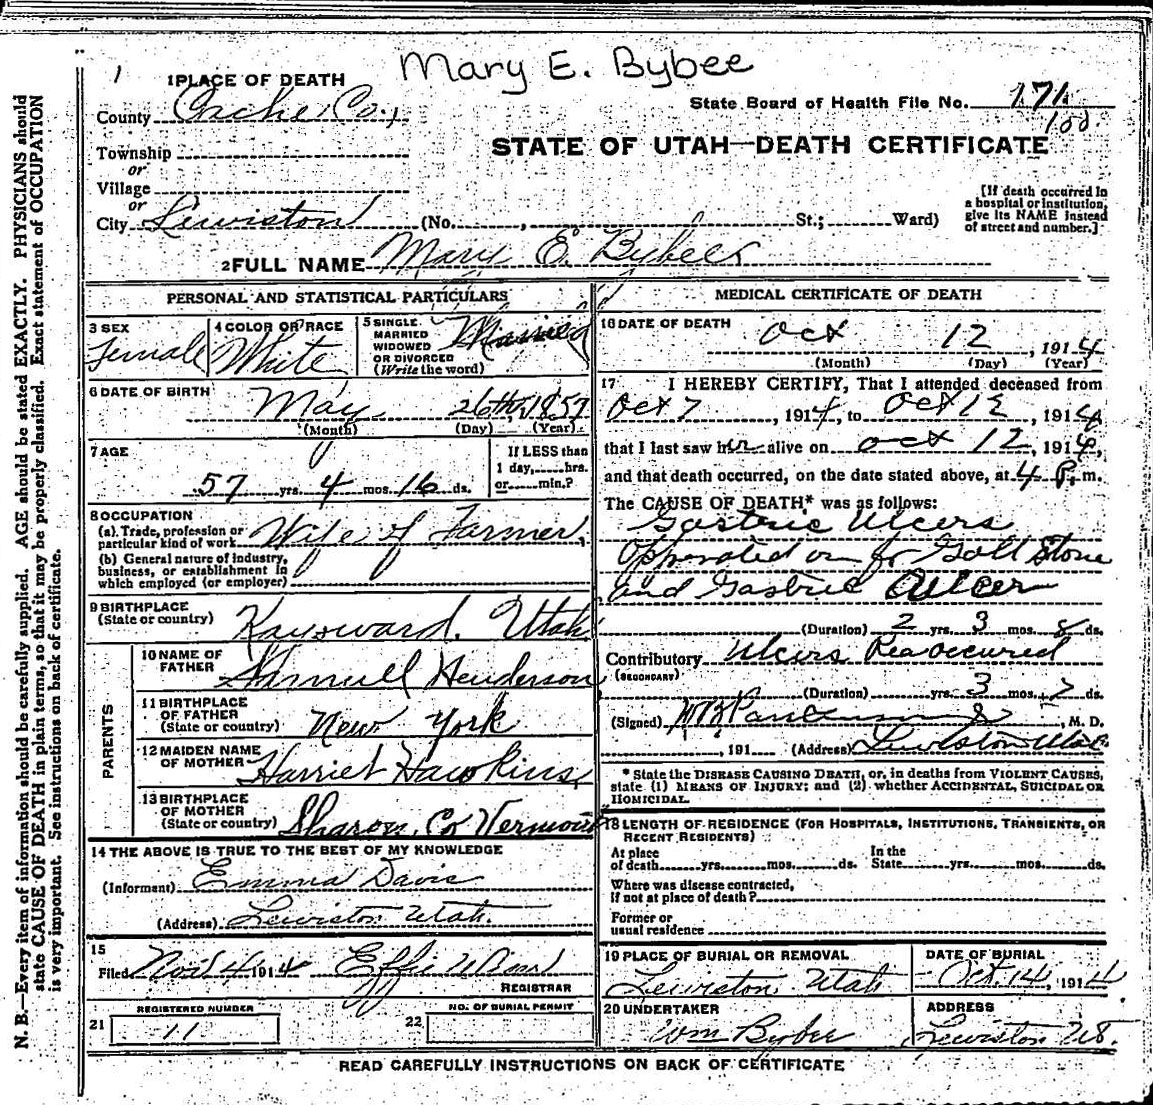 Mary E. Bybee
1
1 PLACE OF DEATH
County Cache Co.,
State Board of Health File No. 171
100
Township
or
Village
or
City Lewiston (No. , St.; Ward)
STATE OF UTAH—DEATH CERTIFICATE
[If death occurred in
a hospital or institution,
give its NAME instead
of street and number.]
2 FULL NAME Mary E. Bybee
PERSONAL AND STATISTICAL PARTICULARS
3 SEX
Female
4 COLOR OR RACE
White
5 SINGLE
MARRIED
WIDOWED
OR DIVORCED
(Write the word)
Married
6 DATE OF BIRTH
May 26th, 1857
(Month) (Day) (Year)
7 AGE
57 yrs. 4 mos. 16 ds.
If LESS than
1 day, hrs.
or min.?
8 OCCUPATION
(a) Trade, profession or
particular kind of work Wife of Farmer,
(b) General nature of industry,
business, or establishment in
which employed (or employer)
9 BIRTHPLACE
(State or country) Kaysward. Utah
PARENTS
10 NAME OF
FATHER Samuell Henderson
11 BIRTHPLACE
OF FATHER
(State or country) New York
12 MAIDEN NAME
OF MOTHER Harriet Hawkins,
13 BIRTHPLACE
OF MOTHER
(State or country) Sharon, Co Vermont
14 THE ABOVE IS TRUE TO THE BEST OF MY KNOWLEDGE
(Informant) Emma Davis
(Address) Lewiston Utah.
15
Filed Nov 4 1914 Effie
REGISTRAR
REGISTERED NUMBER
21 11
NO. OF BURIAL PERMIT
22
MEDICAL CERTIFICATE OF DEATH
16 DATE OF DEATH
Oct 12, 1914
(Month) (Day) (Year)
17 I HEREBY CERTIFY, That I attended deceased from
Oct 7, 1914, to Oct 12, 1914
that I last saw her alive on Oct 12, 1914,
and that death occurred, on the date stated above, at 4 P. m.
The CAUSE OF DEATH* was as follows:
Gastric Ulcers
Opperated on for Gall Stone
and Gastric Ulcer
(Duration) 2 yrs. 3 mos. 8 ds.
Contributory Ulcers Reaoccured
(SECONDARY)
(Duration) yrs. 3 mos. 7 ds.
(Signed) , M. D.
, 191 (Address) Lewiston Utah
* State the DISEASE CAUSING DEATH, or, in deaths from VIOLENT CAUSES,
state (1) MEANS OF INJURY; and (2) whether ACCIDENTAL, SUICIDAL OR
HOMICIDAL.
18 LENGTH OF RESIDENCE (FOR HOSPITALS, INSTITUTIONS, TRANSIENTS, OR
RECENT RESIDENTS)
At place
of death yrs. mos. ds.
In the
State yrs. mos. ds.
Where was disease contracted,
if not at place of death?
Former or
usual residence
19 PLACE OF BURIAL OR REMOVAL
Lewiston Utah
DATE OF BURIAL
Oct. 14, 1914
20 UNDERTAKER
Wm Bybee
ADDRESS
Lewiston Ut.
READ CAREFULLY INSTRUCTIONS ON BACK OF CERTIFICATE
N. B.—Every item of information should be carefully supplied. AGE should be stated EXACTLY. PHYSICIANS should
state CAUSE OF DEATH in plain terms, so that it may be properly classified. Exact statement of OCCUPATION
is very important. See instructions on back of certificate.